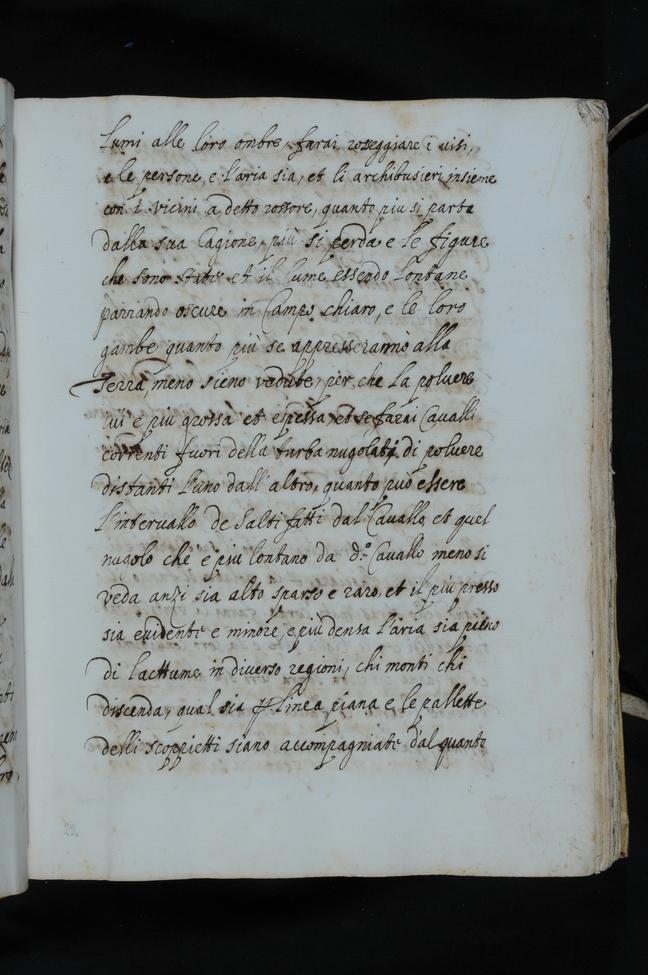 lumi alle loro ombre, farai rosseggiare i uisi,
e le persone, e l'aria sia, et li archibusieri insieme
con i vicini a detto rossore, quanto piu si parta
dalla sua Cagione, più si perda e le figure
che sono stati et il lume essendo lontane
parrando oscure in Campo chiaro, e le loro
gambe quanto più se appresseranno alla
Terra, meno sieno vedute, per che la poluere
iui è più grossa et espessa, et se farai Cavalli
correnti fuori della turba nugolati di poluere
distanti l'uno dall'altro, quanto può essere
l'intervallo de salti fatti dal Cauallo, et quel
nugolo che è piu lontano da d.º Cauallo meno si
veda anzi sia alto sparso e raro, et il più presso
sia euidente e minore, e più densa l'aria sia pieno
di sacttume in diverso regioni, chi monti chi
discenda, qual sia p linea piana e, le pallette
delli scoppietti siano accompagniate dal quanto
22